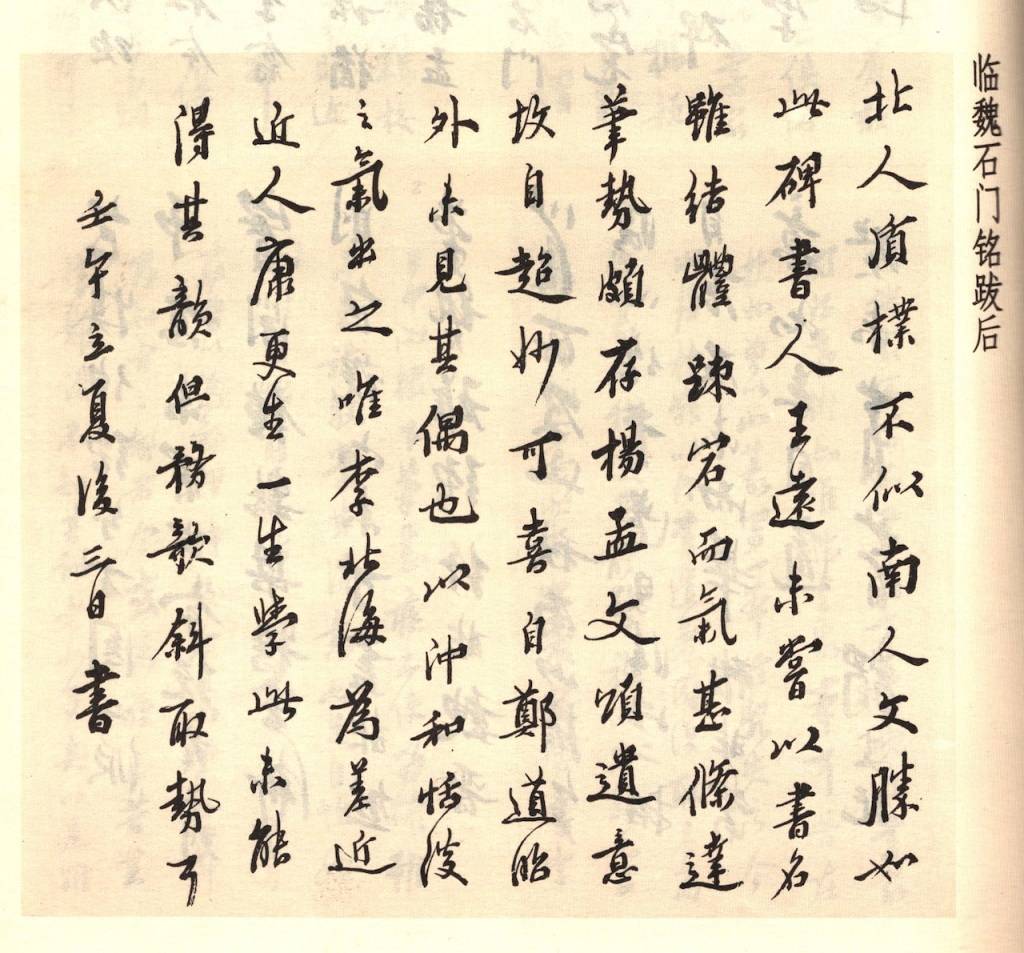 临魏石门铭跋后
北人质樸不似南人文勝如
此碑書人王遠未嘗以書名
雖结體踈宕而氣甚條達
筆勢頗存楊孟文頌遺意
故自超妙可喜自鄭道昭
外未見其偶也以沖和恬淡
之氣出之唯李北海為差近
近人康更生一生學此未能
得其韻但務欹斜取勢耳
壬午立夏後三日 書